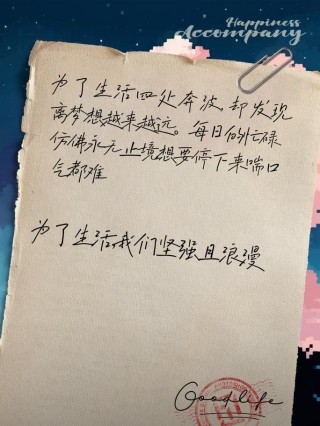 Happiness
Accompany
为了生活四处奔波，却发现
离梦想越来越远。每日的忙碌
仿佛永无止境想要停下来喘口
气都难
为了生活，我们坚强且浪漫
Good life